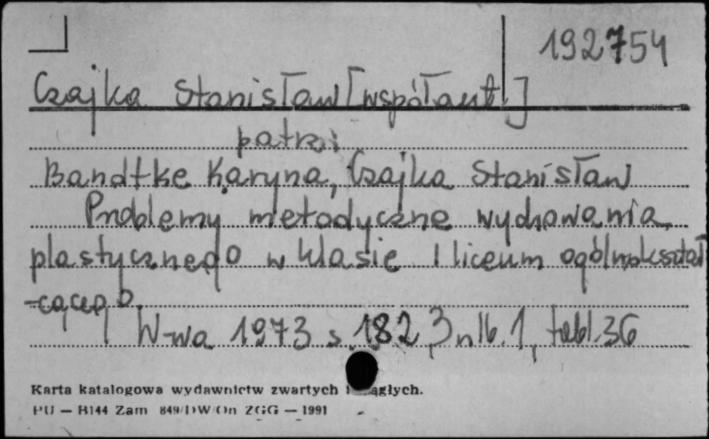 192754
Czajka Stanisław [współaut.]
patrz:
Bandtke Karyna, Czajka Stanisław
Problemy metodyczne wychowania
plastycznego w klasie I liceum ogólnokształ
-cącego.
W-wa 1973 s. 182, 3 nlb. 1, tabl. 36
Karta katalogowa wydawnictw zwartych i ciągłych.
PU — B144 Zam 849/DW/On ZGG — 1991